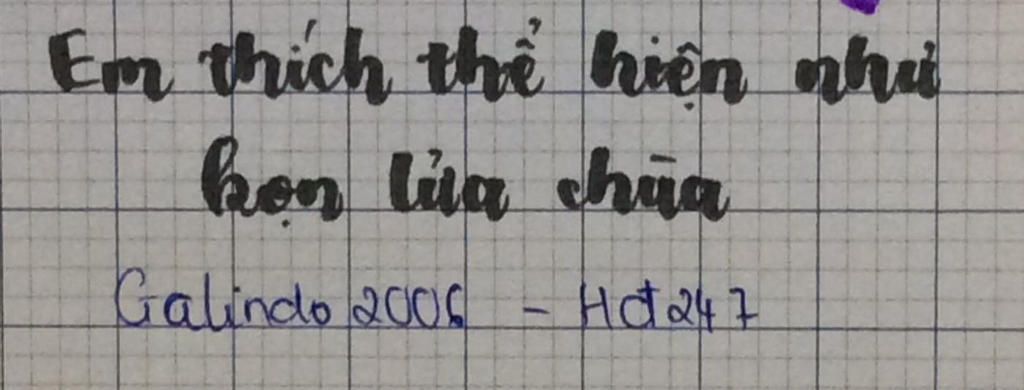 Em thích thể hiện như
bọn lửa chùa
Galindo 2006 - Hot247